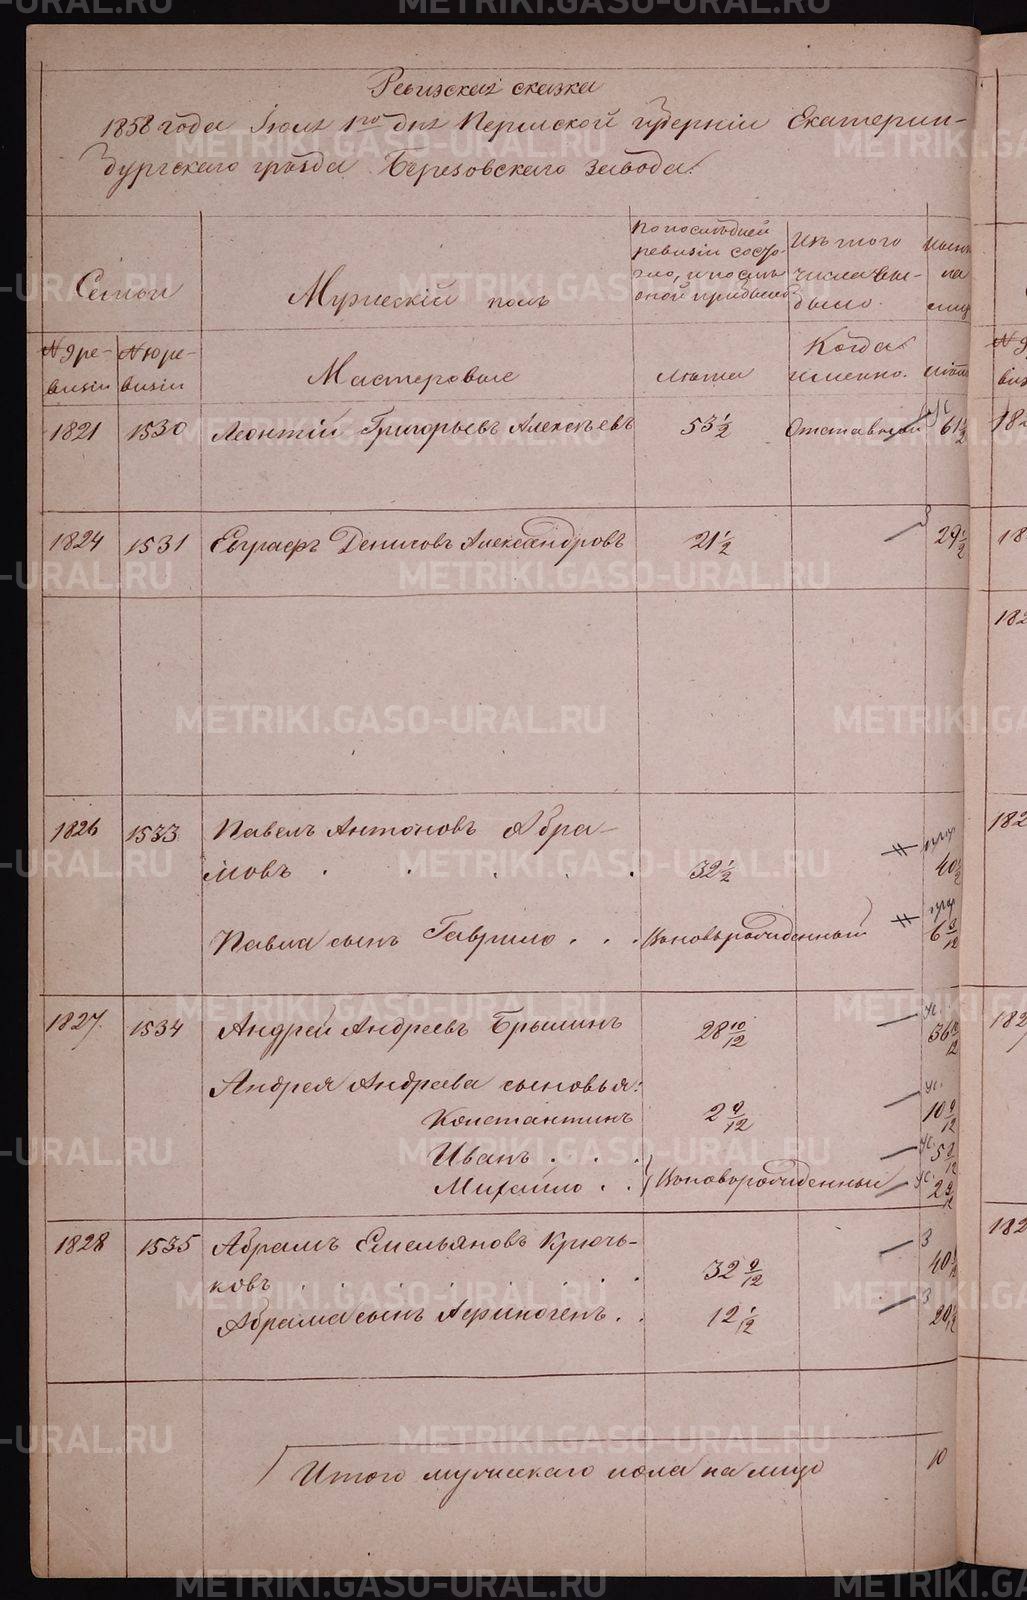 Ревизская сказка
1858 года Июня 1го дня Пермской губерніи Екатерин-
бургскаго уезда Березовскаго завода.
Семьи
Мужескій полъ
По последней
ревизіи состо-
яло, и после
оной прибыло
Изъ того
числа вы-
было.
Ныне
на
лицо
№ 9 ре-
визіи
№ 10 ре-
визіи
Мастеровые
Лета
Когда
именно.
Лета
1821 1530 Леонтій Григорьевъ Алексеевъ 53 1/2 Отставный 61 1/2
1824 1531 Евграфъ Денисовъ Александровъ 21 1/2 29 1/2
1826 1533 Павелъ Антоновъ Абра-
мовъ . . . . . 32 1/2 40 1/2
Павла сынъ Гаврило . . . Вновьрожденный 6 8/12
1827. 1534 Андрей Андреевъ Брылинъ 28 10/12 36 10/12
Андрея Андреева сыновья:
Константинъ 2 9/12 10 9/12
Иванъ . . .
Михайло . . } Вновьрожденные
1828 1535 Абрамъ Емельяновъ Крючь-
ковъ . . . . . . . . 32 9/12
Абрама сынъ Афиногенъ . . 12 1/12 20 1/12
Итого мужескаго пола на лицо 10
METRIKI.GASO-URAL.RU